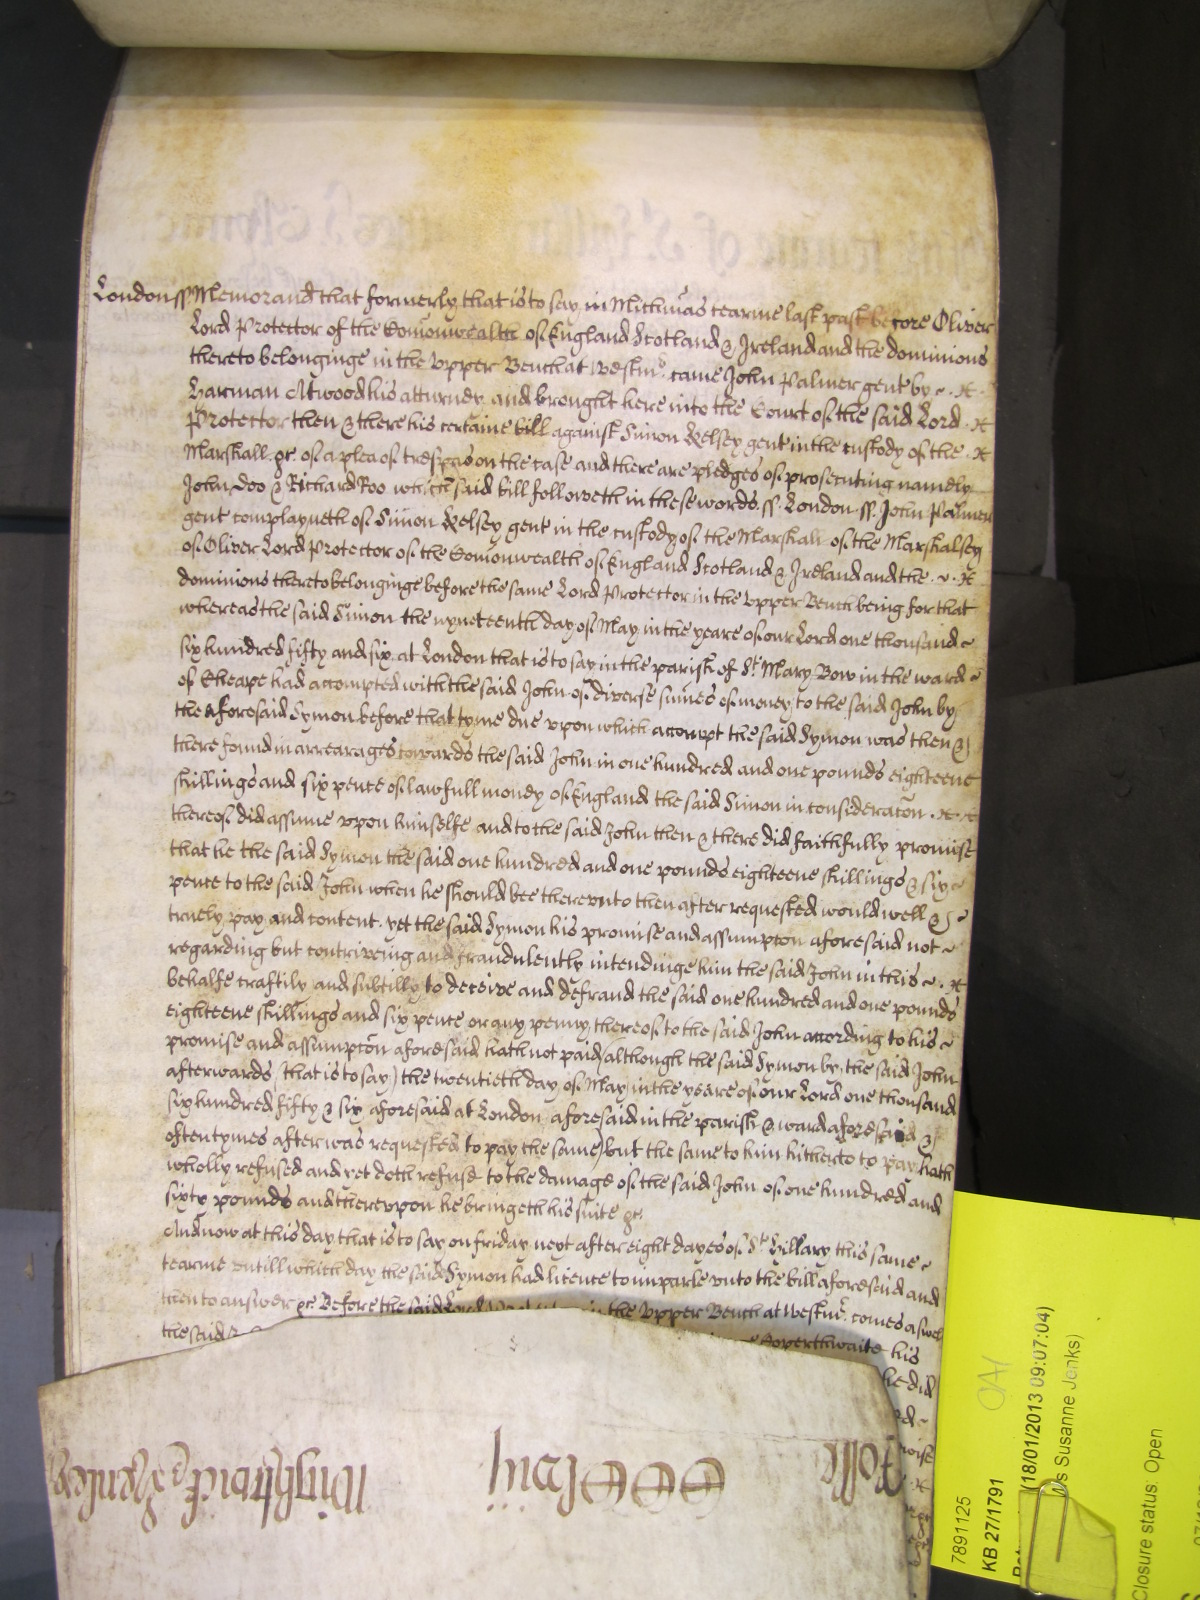 London ss Memorand that formerly that is to say in Michās tearme last past before Oliver
Lord Protector of the Comonwealth of England Scotland & Ireland and the dominions
thereto belonginge in the Upper Bench at Westmr came John Palmer gent by
Harman Atwood his atturney and brought here into the Court of the said Lord
Protector then & there his certaine bill against Simon Kelsey gent in the custody of the
Marshall &c of a plea of trespas on the case and there are pledges of prosecuting namely
John Doo & Richard Roo which said bill followeth in these words ss London ss John Palmer
gent complayneth of Simon Kelsey gent in the custody of the Marshall of the Marshalsey
of Oliver Lord Protector of the Comonwealth of England Scotland & Ireland and the
dominions thereto belonginge before the same Lord Protector in the Upper Bench being for that
whereas the said Simon the nyneteenth day of May in the yeare of our Lord one thousand
six hundred fifty and six at London that is to say in the parish of St Mary Bow in the ward
of Cheape had accompted with the said John of diverse sumes of money to the said John by
the aforesaid Symon before that tyme due upon which accompt the said Symon was then &
there found in arrearages towards the said John in one hundred and one pounds eighteene
shillings and six pence of lawfull money of England the said Simon in consideracon
thereof did assume upon himselfe and to the said John then & there did faithfully promise
that he the said Symon the said one hundred and one pounds eighteene shillings & six
pence to the said John when he should bee thereunto then after requested would well &
truely pay and content yet the said Symon his promise and assumpton aforesaid not
regarding but contriveing and fraudulently intendinge him the said John in this
behalfe craftily and subtilly to deceive and defraud the said one hundred and one pounds
eighteene shillings and six pence or any penny thereof to the said John according to his
promise and assumpton aforesaid hath not paid (although the said Symon by the said John
afterwards (that is to say) the twentieth day of May in the yeare of our Lord one thousand
six hundred fifty & six aforesaid at London aforesaid in the parish & ward aforesaid &
often tymes after was requested to pay the same) but the same to him hitherto to pay hath
wholly refused and yet doth refuse to the damage of the said John of one hundred and
sixty pounds and thereupon he bringeth his suite &c
And now at this day that is to say on friday next after eight dayes of St Hillary this same
tearme untill which day the said Symon had licence to imparle unto the bill aforesaid and
then to answer &c Before the said Lord in the Upper Bench at Westmr comes aswel
the said Coperthwaite his
he did
Rolle
7891125
KB 27/1791
(18/01/2013 09:07:04)
s Susanne Jenks)
Closure status: Open